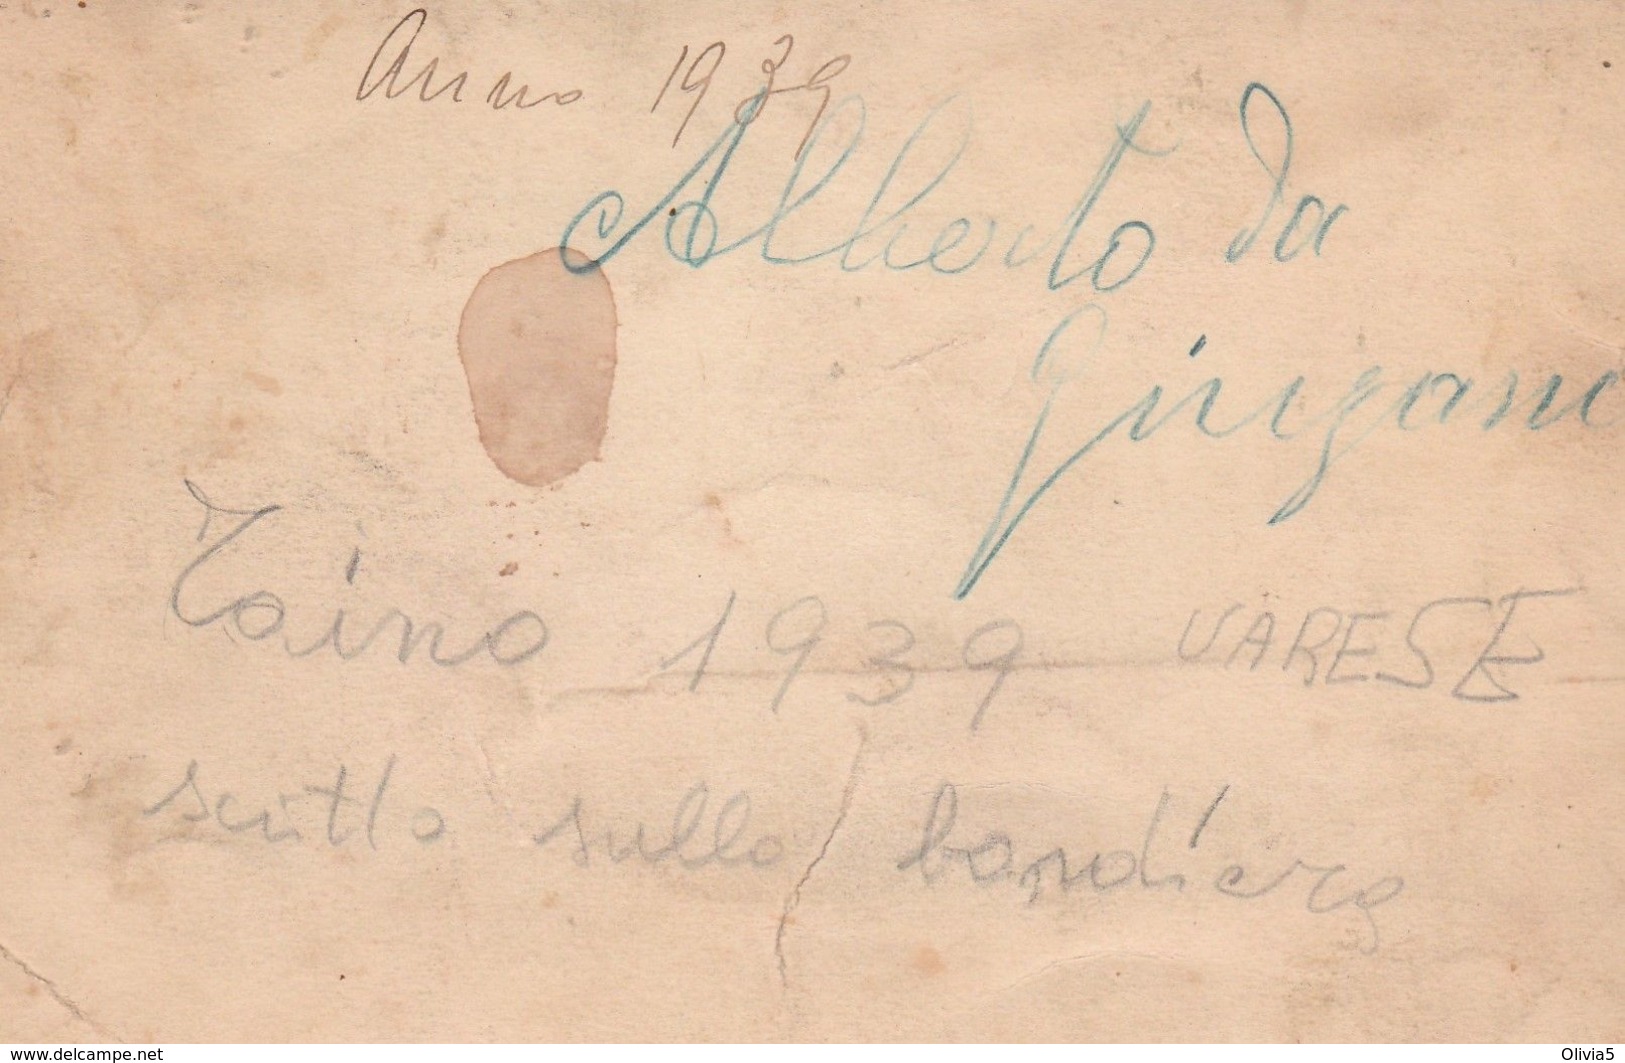 Anno 1939
Alberto da
Taino 1939 VARESE
scritto sulla bandiera
www.delcampe.net
Olivia5